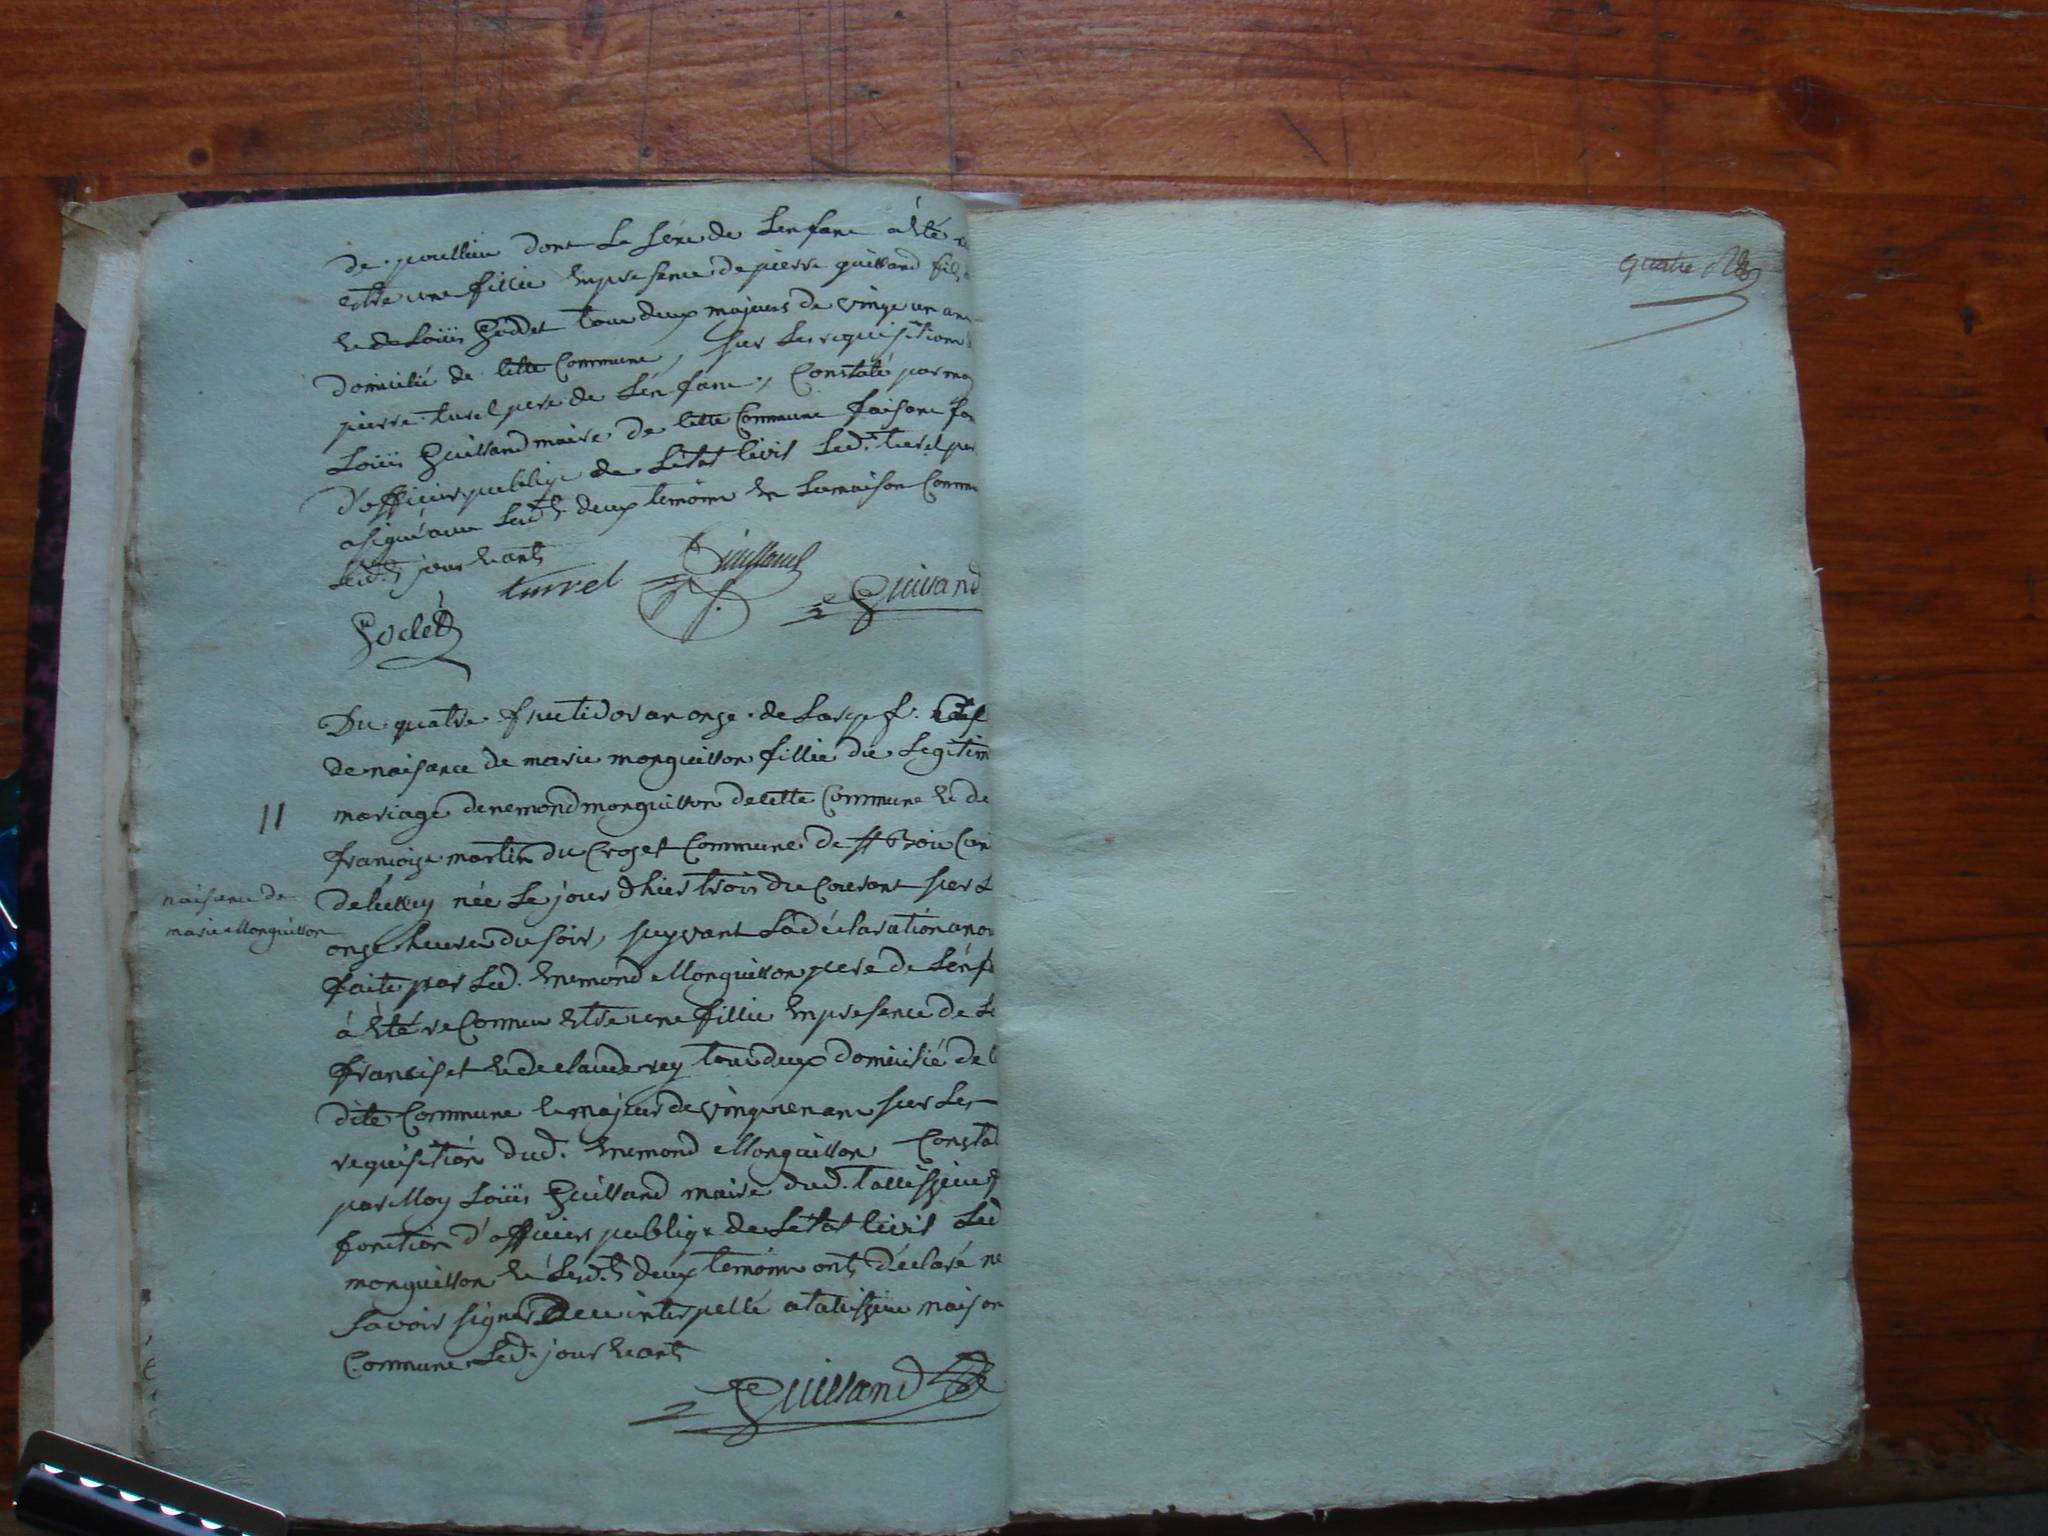 de poullieu dont Le sexe de Lenfant à été
estre une fillie En presence de pierre guilland fils
Et de Loüis Godet tous deux majeurs de vingt un ans
domicilié de Cette Commune, sur Les requisitions
pierre turel pere de Lénfant, Constaté par moy
Loüis Guilland maire de Cette Commune faisant
d'officier publique de L'état Civil Led. turel
a signé avec Lesd.ts deux temoins En La maison
Led.t jour Et an
turel Guilland Guilland
Godet
Du quatre fructidor an onze de La rep. f.
de naisance de marie monguillon fillie du Legitim
11
mariage denemond monguillon de Cette Commune Et de
françoise martin du Crozet Commune de
née Le jour d'hier trois du Courant sur
naisance de
marie Monguillon
onze heures du soir, suyvant La déclaration
faite par Led. Enemond Monguillon pere de
à été reConnu Estre une fillie En presence de
Et de claude rey tous deux domicilié de
dite Commune Et majeur de vingt un ans sur Les
requisition dud. Enemond Monguillon Consta
par Moy Loüis Guilland maire dud.
fonction d'officier publique de L'état Civil Led
monguillon Et Lesd.ts deux temoins ont déclaré ne
savoir signer interpellé a maison
Commune Led. jour Et an
Guilland
quatre